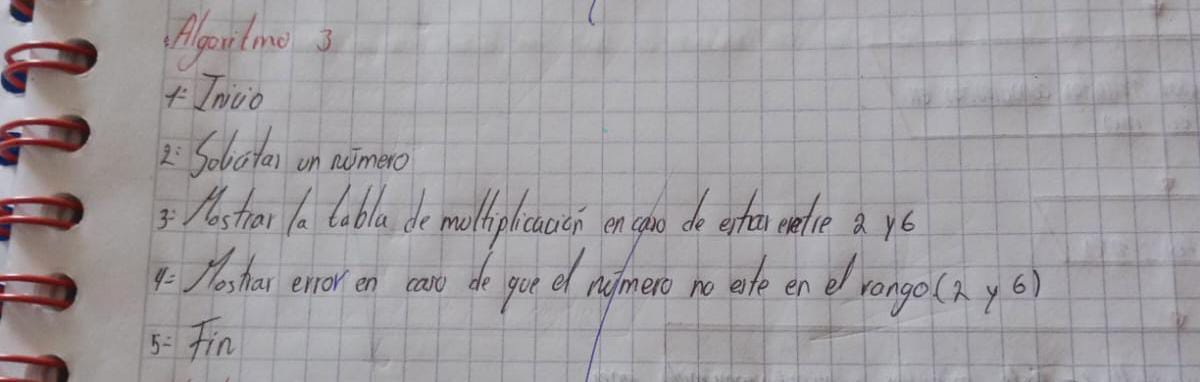 Algoritmo 3
1= Inicio
2= Solicitar un número
3= Mostrar la tabla de moltiplicación en caso de estar entre 2 y 6
4= Mostrar error en caso de que el número no este en el rango (2 y 6)
5= Fin